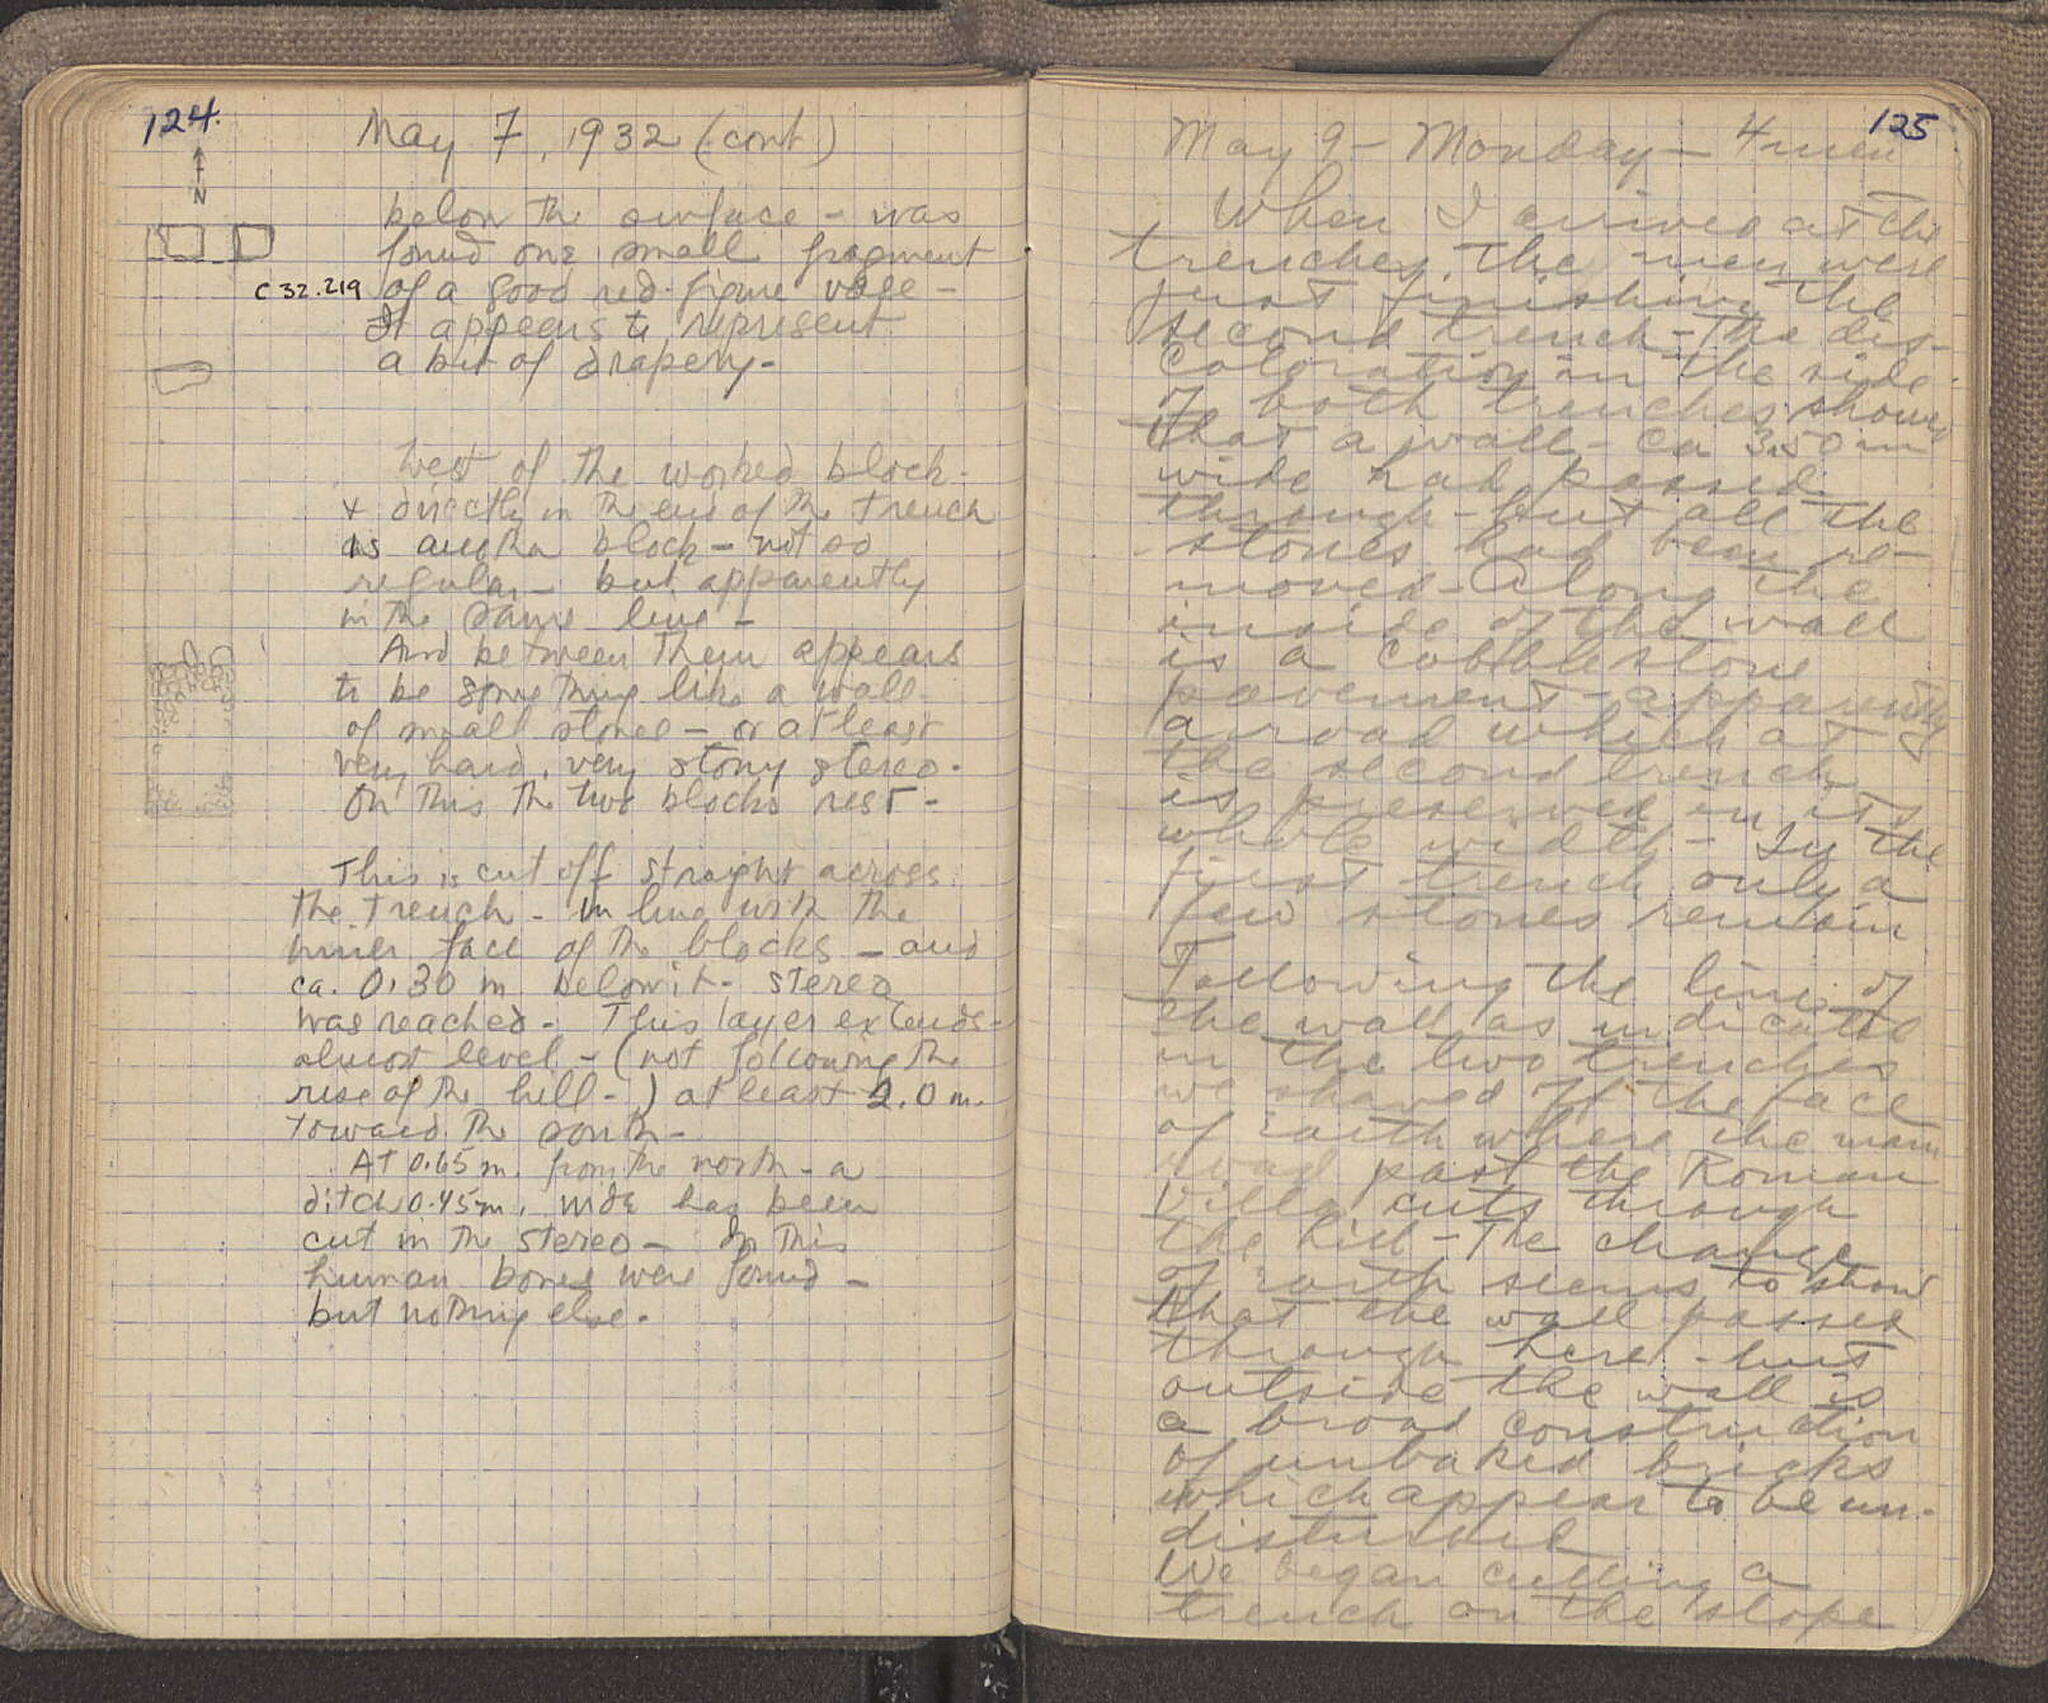 124.
May 7, 1932 (cont)
N
below the surface - was
found one small fragment
C 32.219 of a good red-figure vase -
It appears to represent
a bit of drapery.
West of the worked block -
+ directly in the end of the trench
is another block - not so
regular - but apparently
in the same line -
And between them appears
to be something like a wall
of small stones - or at least
very hard, very stony stereo.
On this the two blocks rest -
This is cut off straight across
the trench - in line with the
inner face of the blocks - and
ca. 0.30 m below it - stereo
was reached. This layer extends -
almost level - (not following the
rise of the hill -) at least 2.0 m.
toward the south -
At 0.65 m. from the north - a
ditch 0.45 m. wide has been
cut in the stereo - In this
human bones were found -
but nothing else.
125
May 9 - Monday - 4 men
When I arrived at the
trenches, the men were
just finishing the
second trench - The dis-
coloration in the side
of both trenches shows
that a wall - ca 3.50 m
wide had passed
through - but all the
stones had been re-
moved - Along the
inside of the wall
is a cobblestone
pavement - apparently
a road which at
the second trench
is preserved in its
whole width - In the
first trench only a
few stones remain
Following the line of
the wall as indicated
in the two trenches
we shaved off the face
of earth where the main
road past the Roman
Villa cuts through
the hill - The change
of earth seems to show
that the wall passed
through here - but
outside the wall is
a broad construction
of unbaked bricks
which appear to be un-
disturbed
We began cutting a
trench on the slope